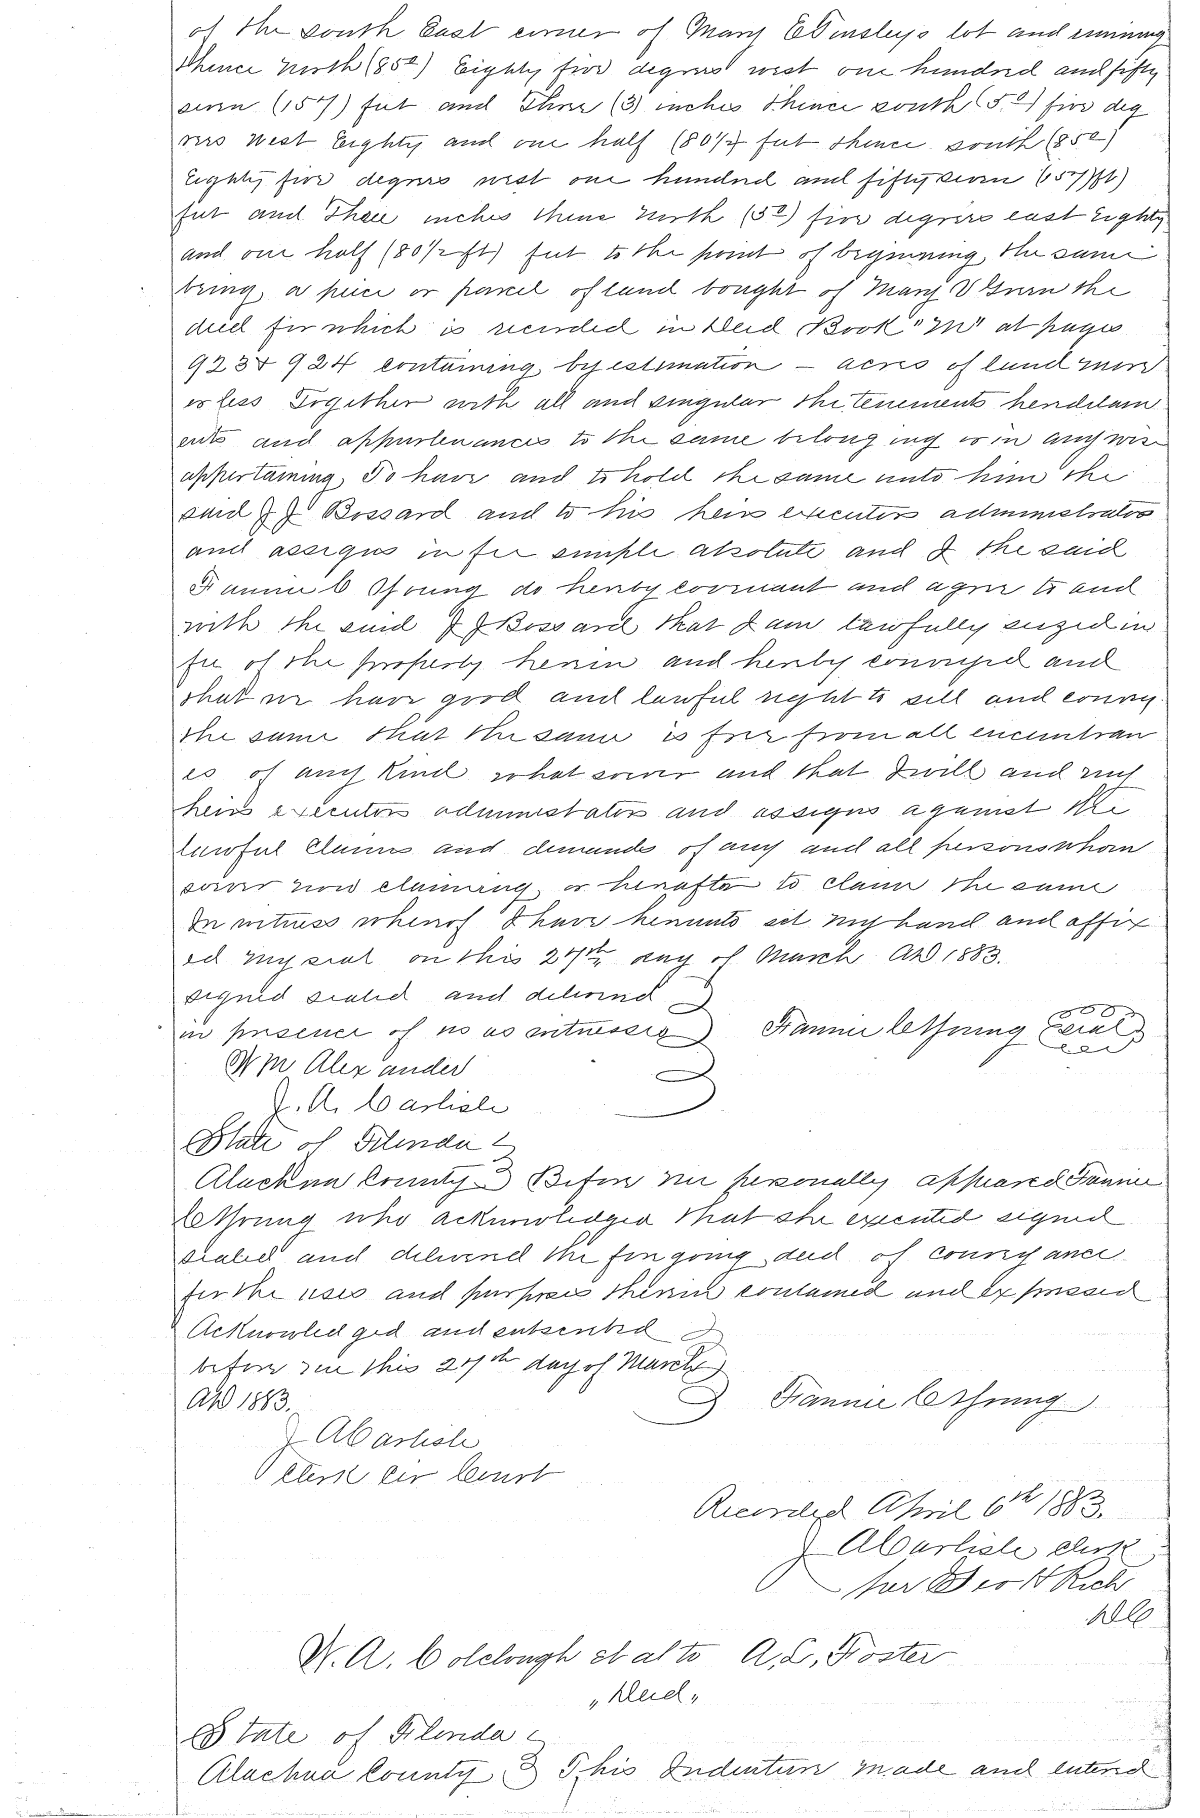 of the south East corner of Mary E Tinsleys lot and running
thence North (85°) Eighty five degrees west one hundred and fifty
seven (157) feet and Three (3) inches thence south (5°) five deg
rees West Eighty and one half (80½) feet thence south (85°)
Eighty five degrees west one hundred and fifty seven (157)ft)
feet and Three inches thence North (5°) five degrees east Eighty
and one half (80½ft) feet to the point of beginning, the same
being a peice or parcel of land bought of Mary V Green the
deed for which is recorded in Deed Book "M" at pages
923 & 924 containing by estimation – acres of land more
or less Together with all and singular the tenements heridilam
ents and appurtenances to the same belonging or in any wise
appertaining, To have and to hold the same unto him the
said J J Bossard and to his heirs executors administrators
and assigns in fee simple absolute and I the said
Fannie C Young do hereby covenant and agree to and
with the said J J Bossard that I am lawfully seized in
fee of the property herein and hereby conveyed and
that we have good and lawful right to sell and convey
the same that the same is free from all encumbran
es of any Kind what soever and that I will and my
heirs executors administrators and assigns against the
lawful Claims and demands of any and all persons whom
soever now claiming, or herafter to claim the same
In witness whereof I have hereunto set my hand and affix
ed my seal on this 24th day of March AD 1883.
signed sealed and delivered
in presence of us as witnesses Fannie C Young Seal
W m Alexander
J. A. Carlisle
State of Florida
Alachua County Before me personally appeared Fannie
C Young who acknowledged that she executed signed
sealed and delivered the foregoing deed of conveyance
for the uses and purposes therein contained and expressed
Acknowledged and subscribed
before me this 24th day of March
AD 1883. Fannie C Young
J A Carlisle
Clerk Cir Court
Recorded April 6th 1883.
J A Carlisle Clerk
per Geo H Rich
DC
W. A. Colclough et al to A. L. Foster
"Deed"
State of Florida
Alachua County This Indenture made and entered